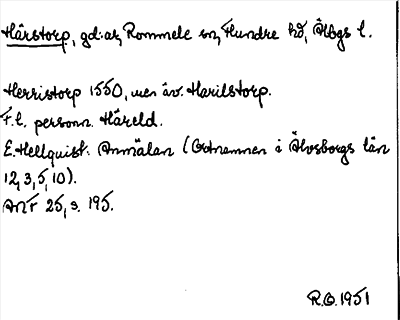 Hårstorp, gd:ar, Rommele sn, Flundre hd, Älvbgs l.
Herristorp 1550, men äv. Harilstorp.
F.l. personn. Häreld.
E. Hellquist: Anmälan (Ortnamnen i Älvsborgs län
12, 3, 5, 10).
ANF 25, s. 195.
R.O. 1951